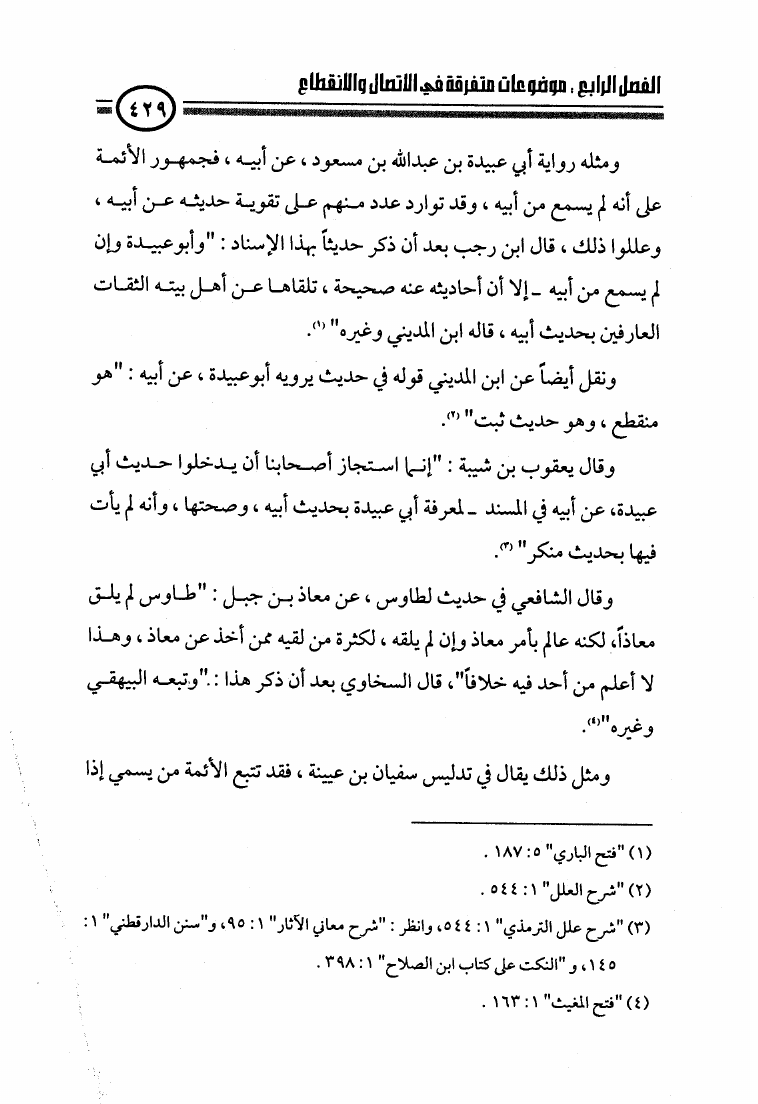 الفصل الرابع : موضوعات متفرقة في الاتصال والانقطاع
٤٢٩
ومثله رواية أبي عبيدة بن عبدالله بن مسعود ، عن أبيه ، فجمهور الأئمة
على أنه لم يسمع من أبيه ، وقد توارد عدد منهم على تقوية حديثه عن أبيه ،
وعللوا ذلك ، قال ابن رجب بعد أن ذكر حديثاً بهذا الإسناد : "وأبوعبيدة وإن
لم يسمع من أبيه ـ إلا أن أحاديثه عنه صحيحة ، تلقاها عن أهل بيته الثقات
العارفين بحديث أبيه ، قاله ابن المديني وغيره" (١).
ونقل أيضاً عن ابن المديني قوله في حديث يرويه أبوعبيدة ، عن أبيه : "هو
منقطع ، وهو حديث ثبت" (٢).
وقال يعقوب بن شيبة : "إنما استجاز أصحابنا أن يدخلوا حديث أبي
عبيدة، عن أبيه في المسند ـ لمعرفة أبي عبيدة بحديث أبيه ، وصحتها ، وأنه لم يأت
فيها بحديث منكر" (٣).
وقال الشافعي في حديث لطاوس ، عن معاذ بن جبل : "طاوس لم يلق
معاذاً، لكنه عالم بأمر معاذ وإن لم يلقه ، لكثرة من لقيه ممن أخذ عن معاذ ، وهذا
لا أعلم من أحد فيه خلافاً"، قال السخاوي بعد أن ذكر هذا : "وتبعه البيهقي
وغيره"(٤).
ومثل ذلك يقال في تدليس سفيان بن عيينة ، فقد تتبع الأئمة من يسمي إذا
(١) "فتح الباري" ٥: ١٨٧ .
(٢) "شرح العلل" ١: ٥٤٤ .
(٣) "شرح علل الترمذي" ١: ٥٤٤، وانظر : "شرح معاني الآثار" ١: ٩٥، و"سنن الدارقطني" ١:
١٤٥، و "النكت على كتاب ابن الصلاح" ١: ٣٩٨ .
(٤) "فتح المغيث" ١: ١٦٣ .